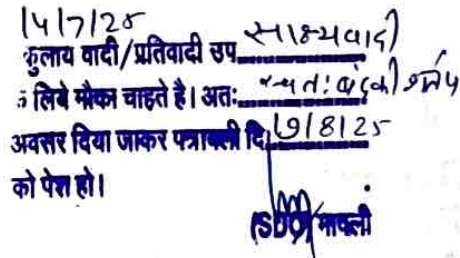 14/7/25
कुलाय वादी/प्रतिवादी उप साक्ष्यवादी
के लिये मौका चाहते है। अतः स्वतः बंद की शर्त पर
अवसर दिया जाकर पत्रावली दि 7/8/25
को पेश हो।
(SDO) मावली